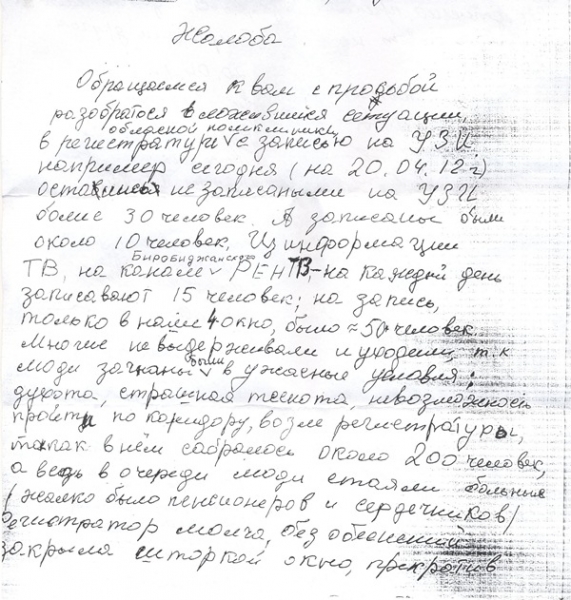 Жалоба
Обращаемся к вам с просьбой
разобраться в сложившийся ситуации,
областной поликлиники
в регистратури с записью на УЗИ
например сегодня (на 20.04.12 г)
остались не записаными на УЗИ
более 30 человек. А записаны были
около 10 человек, Из информации
Биробиджанского
ТВ, на канале РЕН ТВ, на каждый день
записавают 15 человек; на запись,
только в наше 4 окно, было ≈ 50 человек
Многие не выдерживали и уходили, т.к
были
люди загнаны в ужасные условия;
духота, страшная теснота, невозможность
пройти по каридору, возле регистратуры,
так как в нём собралось около 200 человек,
а ведь в очереди люди стаяли больные
/жалко было пенсионеров и сердечников/
Регистратор молча, без обяснений
закрыла шторкой окно, прекратив